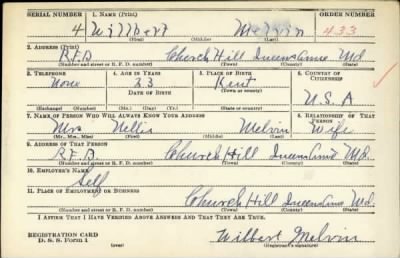 SERIAL NUMBER 1. NAME (Print) ORDER NUMBER
4 Willbert Melvin 433
(First) (Middle) (Last)
2. ADDRESS (Print)
R.F.D Church Hill Queens Anne Md.
(Number and street or R. F. D. number) (Town) (County) (State)
3. TELEPHONE 4. AGE IN YEARS 5. PLACE OF BIRTH 6. COUNTRY OF CITIZENSHIP
None 23 Kent
DATE OF BIRTH (Town or county)
U.S.A
(Exchange) (Number) (Mo.) (Day) (Yr.) (State or country)
7. NAME OF PERSON WHO WILL ALWAYS KNOW YOUR ADDRESS 8. RELATIONSHIP OF THAT PERSON
Mrs Nellie Melvin Wife
(Mr., Mrs., Miss) (First) (Middle) (Last)
9. ADDRESS OF THAT PERSON
R.F.D. Church Hill Md.
(Number and street or R. F. D. number) (Town) (County) (State)
10. EMPLOYER'S NAME
Self
11. PLACE OF EMPLOYMENT OR BUSINESS
Church Hill Md.
(Number and street or R. F. D. number) (Town) (County) (State)
I AFFIRM THAT I HAVE VERIFIED ABOVE ANSWERS AND THAT THEY ARE TRUE.
REGISTRATION CARD
D. S. S. Form 1 (over) Wilbert Melvin
(Registrant's signature)